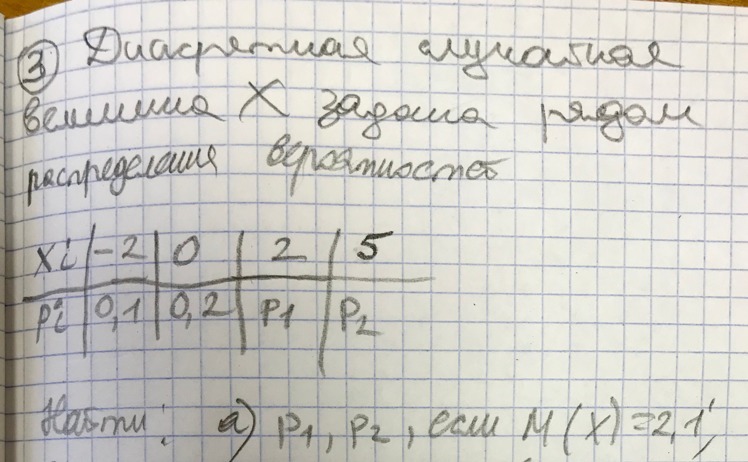 ③ Дискретная случайная
величина X задана рядом
распределения вероятностей
xi | -2 | 0 | 2 | 5
pi | 0,1 | 0,2 | p1 | p2
Найти: а) p1, p2, если M(X)=2,1;